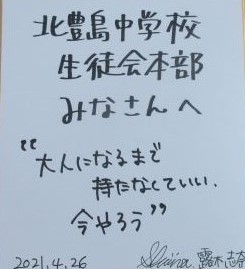 北豊島中学校
生徒会本部
みなさんへ
"大人になるまで
持たなくていい.
今やろう"
2021.4.26 露木志奈